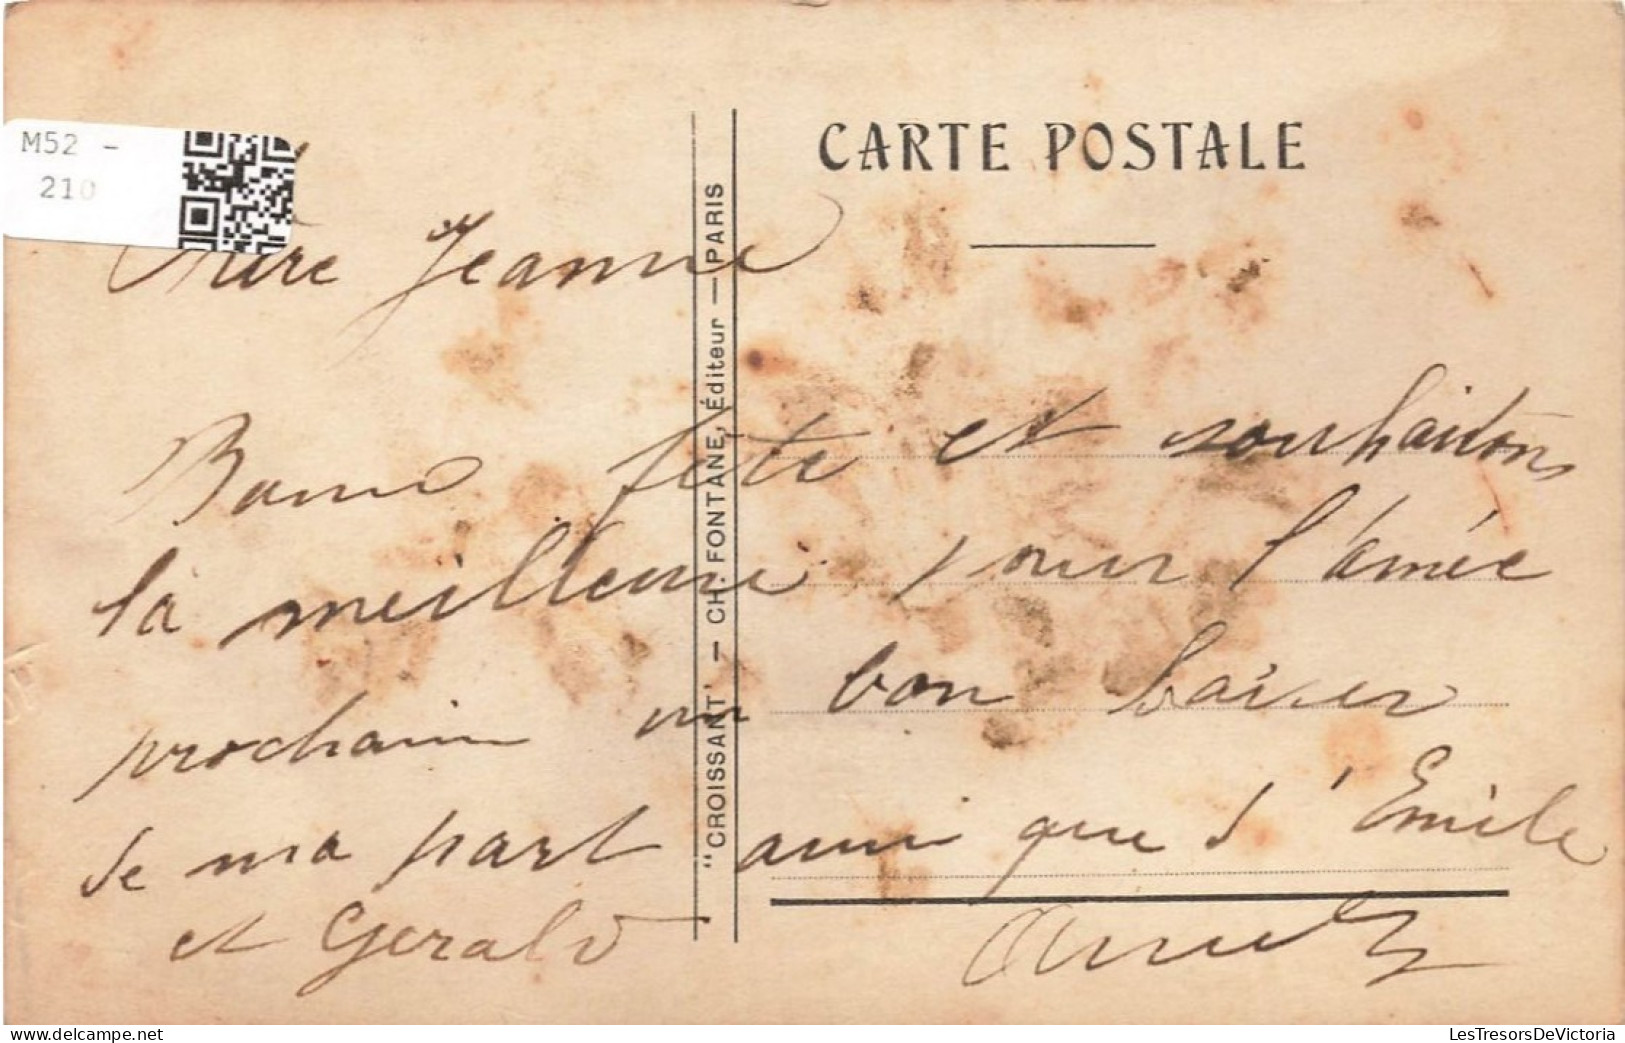 M52 -
210
CARTE POSTALE
"CROISSANT" — CH. FONTANE, Éditeur — PARIS
Chère Jeanne
Bonne fête et souhaitons
la meilleure pour l'année
prochain un bon baiser
de ma part aussi que d'Emile
et Gerald
LesTresorsDeVictoria